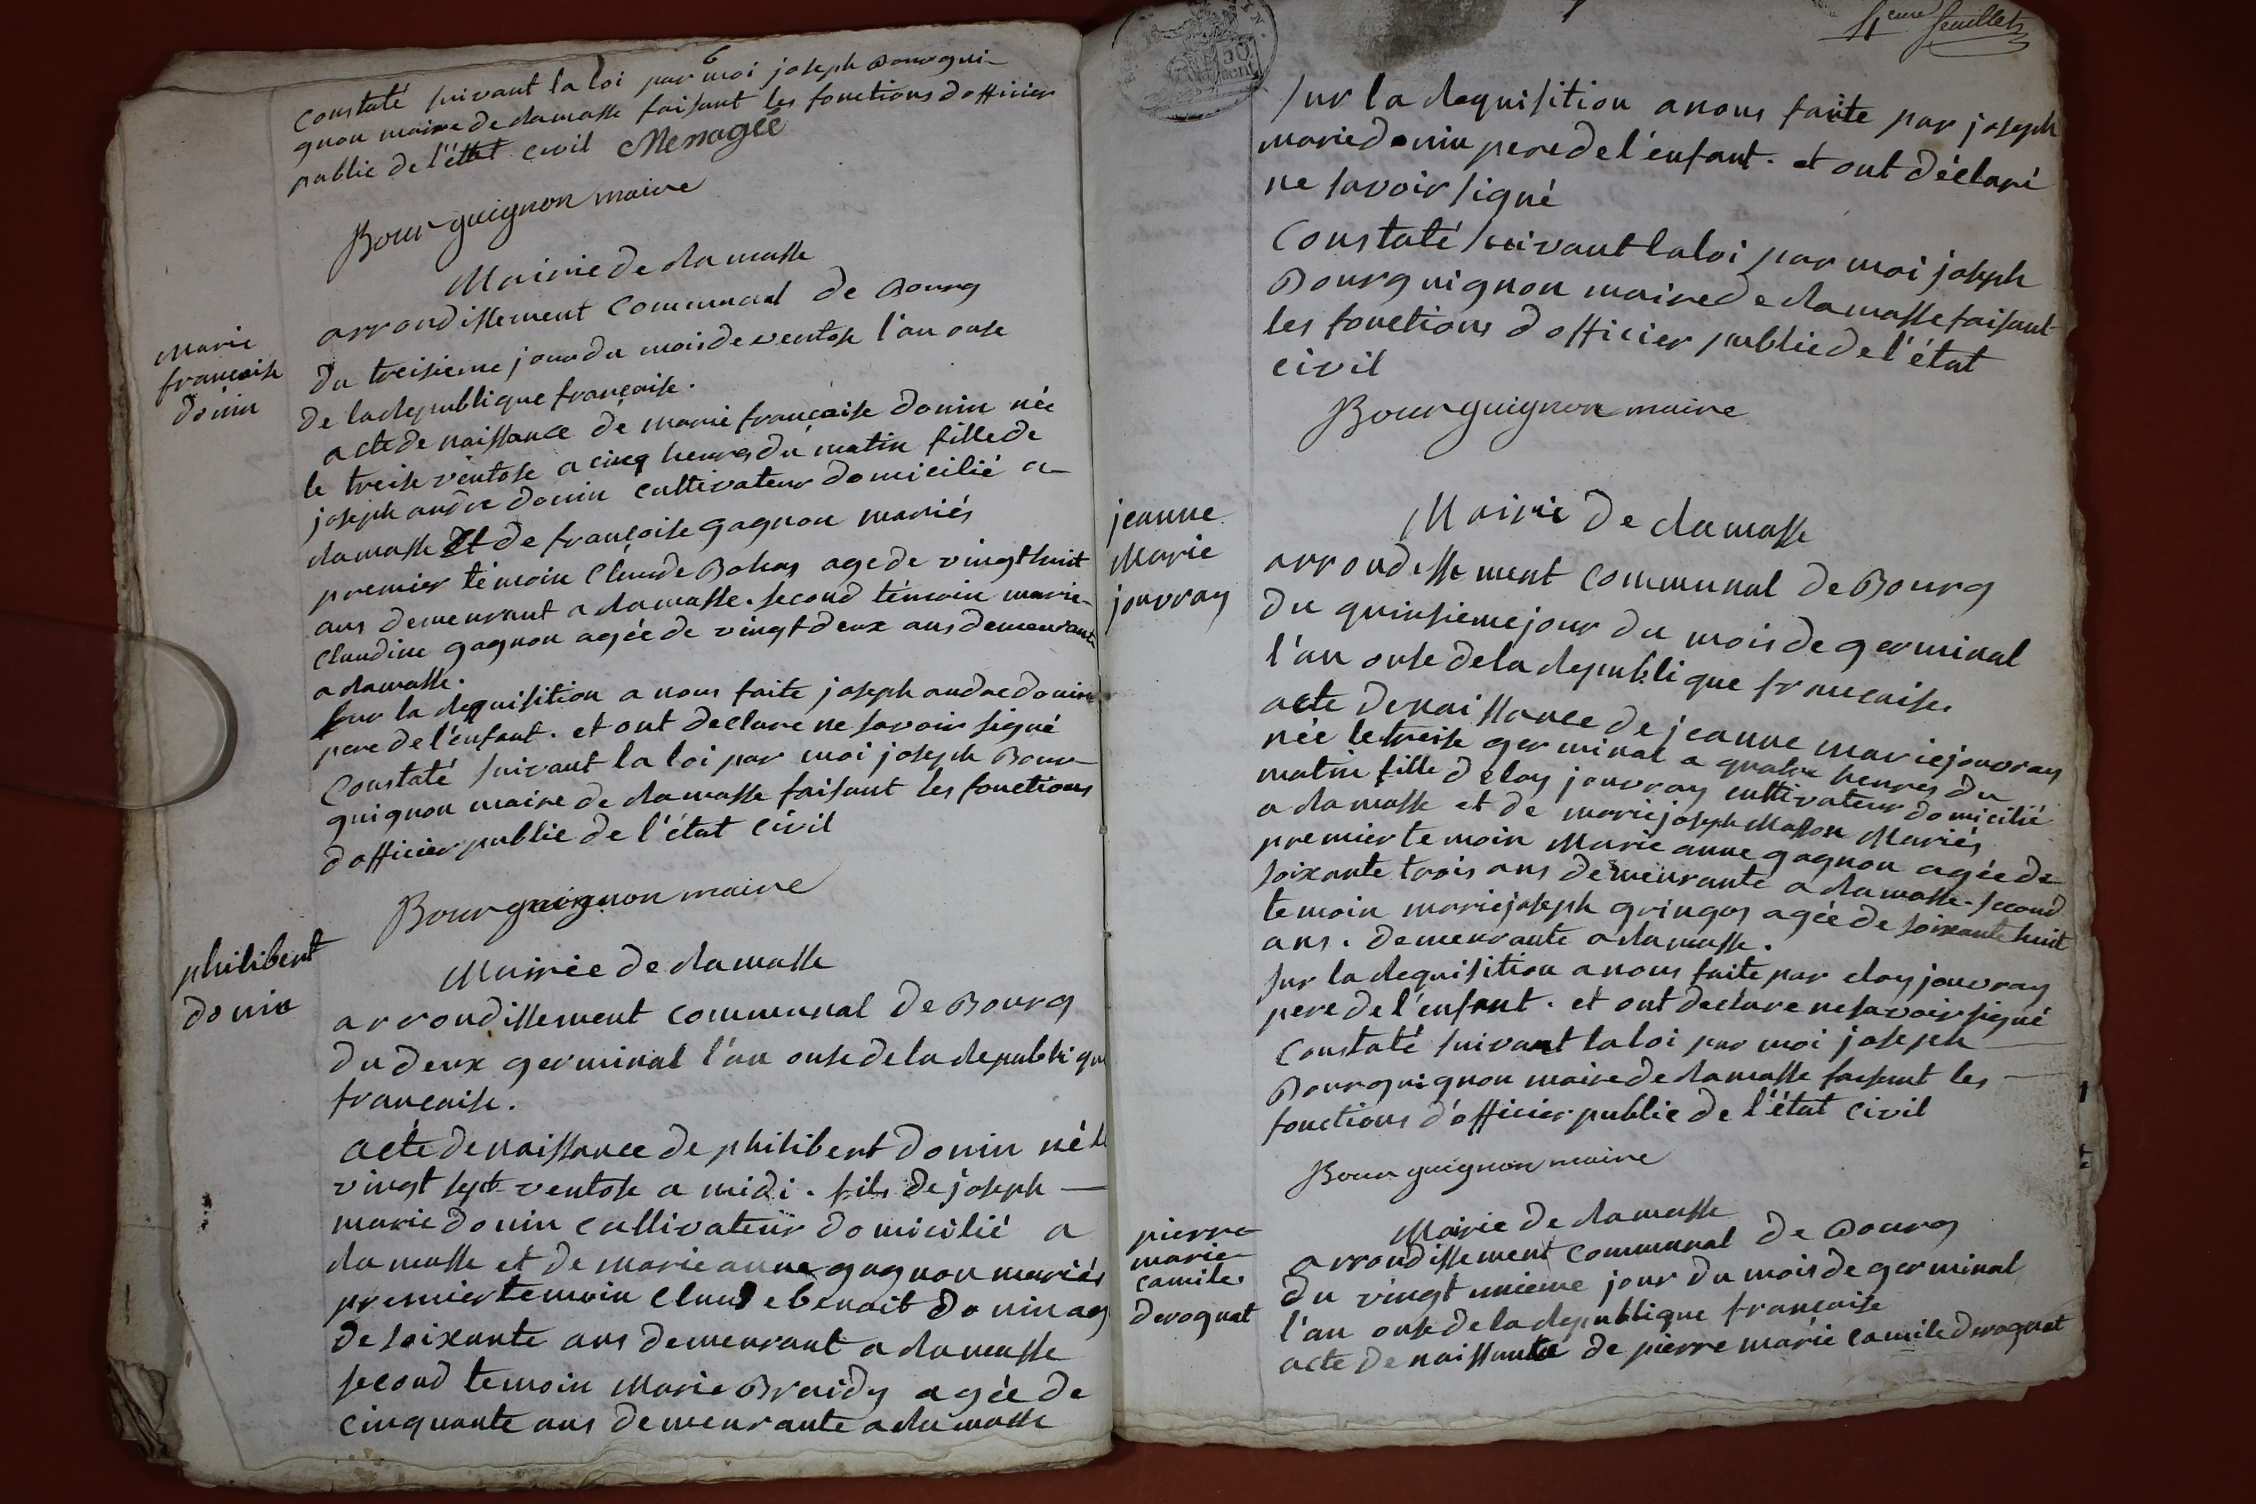 6
Constaté suivant la loi par moi joseph Bourgui-
gnon maire de damasse faisant les fonctions dofficier
public de l'éttat civil Messagée
Bourguignon maire
Mairie de damasse
arrondissement Communal de Bourg
Marie
françoise
donin
du treisieme jour du mois de ventose l'an onse
de la depublique française.
acte de naissance de marie françaisse donin née
le treise ventose a cinq heures du matin fille de
joseph andre donin cultivateur domicilié a
damasse Et de françoise gagnon mariés
premier témoin Claude Bohas age de vingt huit
ans demeurant a damasse. second témoin marie-
claudine gagnon agée de vingt deux ans demeurante
a damasse.
sur la dequisition a nous faite joseph andre donin
pere de l'enfant. et ont declare ne savoir signé
Constaté suivant la loi par moi joseph Bour-
guignon maire de damasse faisant les fonctions
dofficier public de l'état civil
Bourguignon maire
philibert
donin
Mairie de damasse
arrondissement communal de Bourg
du deux germinal l'an onse de la depublique
française.
acte de naissance de philibert donin né le
vingt sept ventose a midi. fils de joseph
marie donin cultivateur domicilié a
damasse et de marie anne gagnon mariés
premier temoin Claude benoit donin ag
de soixante ans demeurant a damasse
second temoin Marie Braidy agée de
cinquante ans demeurante a damasse
feuillet
sur la dequisition a nous faite par joseph
marie donin pere de l'enfant. et ont déclaré
ne savoir signé
Constaté suivant la loi par moi joseph
Bourguignon maire de damasse faisant
les fonctions dofficier public de l'état
civil
Bourguignon maire
jeanne
Marie
jouvray
Mairie de damasse
arrondissement communal de Bourg
du quinsieme jour du mois de germinal
l'an onse de la depublique française
acte de naissance de jeanne marie jouvray
née le treise germinal a quatre heures du
matin fille d'eloy jouvray cultivateur domicilié
a damasse et de marie joseph Masson Mariés
premier temoin Marie anne gagnon agée de
soixante trois ans demeurante a damasse. second
temoin marie joseph gringos agée de soixante huit
ans. demeurante a damasse.
sur la dequisition a nous faite par eloy jouvray
pere de l'enfant. et ont declare ne savoir signé
Constaté suivant la loi par moi joseph
Bourguignon maire de damasse faisant les
fonctions d'officier public de l'état civil
Bourguignon maire
pierre
marie
camile
deroguat
Mairie de damasse
arrondissement communal de Bourg
du vingt unieme jour du mois de germinal
l'an onse de la depublique française
acte de naissante de pierre marie camile deroguat